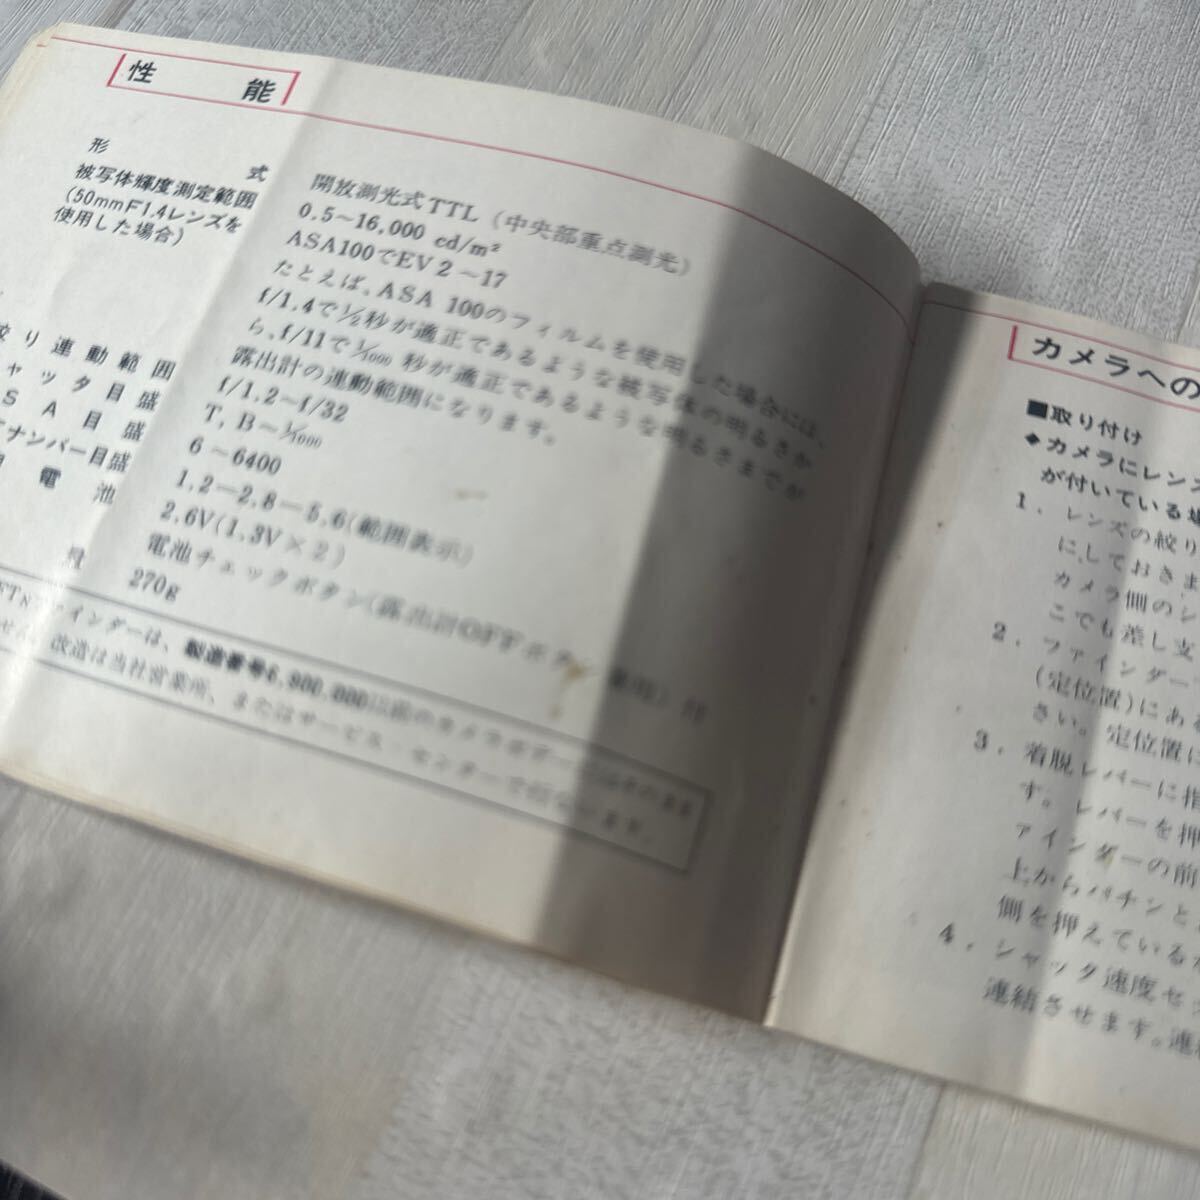 性能
形式 開放測光式TTL (中央部重点測光)
被写体輝度測定範囲 0.5～16,000 cd/m²
(50mmF1.4レンズを ASA100でEV2～17
使用した場合) たとえば、ASA 100のフィルムを使用した場合には、
f/1.4で1/2秒が適正であるような被写体の明るさか
ら、f/11で1/1000 秒が適正であるような明るさまでが
露出計の連動範囲になります。
絞り連動範囲 f/1.2～f/32
ャッタ目盛 T, B～1/1000
SA目盛 6～6400
ナンバー目盛 1.2－2.8－5.6(範囲表示)
電池 2.6V(1.3V×2)
電池チェックボタン(露出計OFFボタン兼用)付
270g
FTNファインダーは、製造番号6,900,000以前のカメラボデーにはそのまま
せん。改造は当社営業所、またはサービス・センターで行ないます。
カメラへの
■取り付け
◆カメラにレンズ
が付いている場
1. レンズの絞り
にしておきま
カメラ側のシ
こでも差し支
2. ファインダー
(定位置)にあ
さい。定位置に
3. 着脱レバーに指
す。レバーを押
ァインダーの前
上からパチンと
側を押えている
4. シャッタ速度セ
連結させます。連